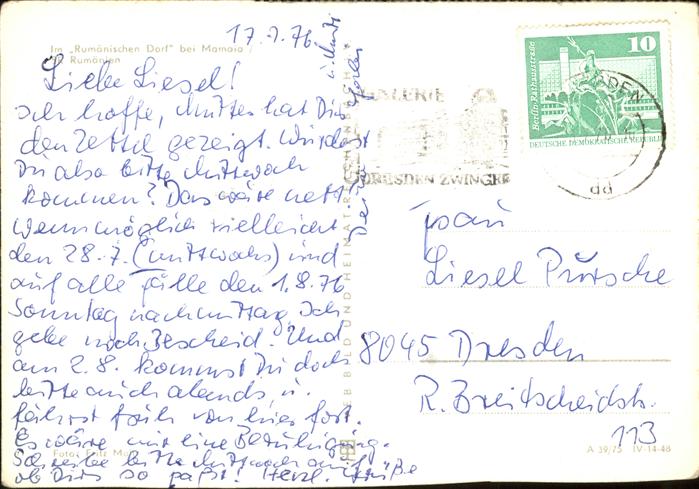 17.7.76
Im „Rumänischen Dorf“ bei Mamaia /
Rumänien
Liebe Liesel!
Ich hoffe, Mutter hat Dir
den Zettel gezeigt. Würdest
Du also bitte Mittwoch
kommen? Das wäre nett
wenn möglich vielleicht
den 28.7. (mittwochs) und
auf alle Fälle den 1.8.76
Sonntag nachmittag. Ich
gebe noch Bescheid. Und
am 2.8. kommst Du doch
bitte auch abends, u.
fährst früh von hier fort.
Es wäre mir eine Beruhigung.
Schreibe bitte Mittwoch auf,
ob Dir's so paßt! Herzl. Grüße
Deine
u.
Foto: Fritz
BILD UND HEIMAT REICHENBACH
GALERIE
DRESDEN ZWINGER
DRESDEN
Berlin-Rathausstraße
10
DEUTSCHE DEMOKRATISCHE REPUBLIK
Frau
Liesel
8045 Dresden
R. Breitscheidstr.
113
A 39/75 IV-14-48